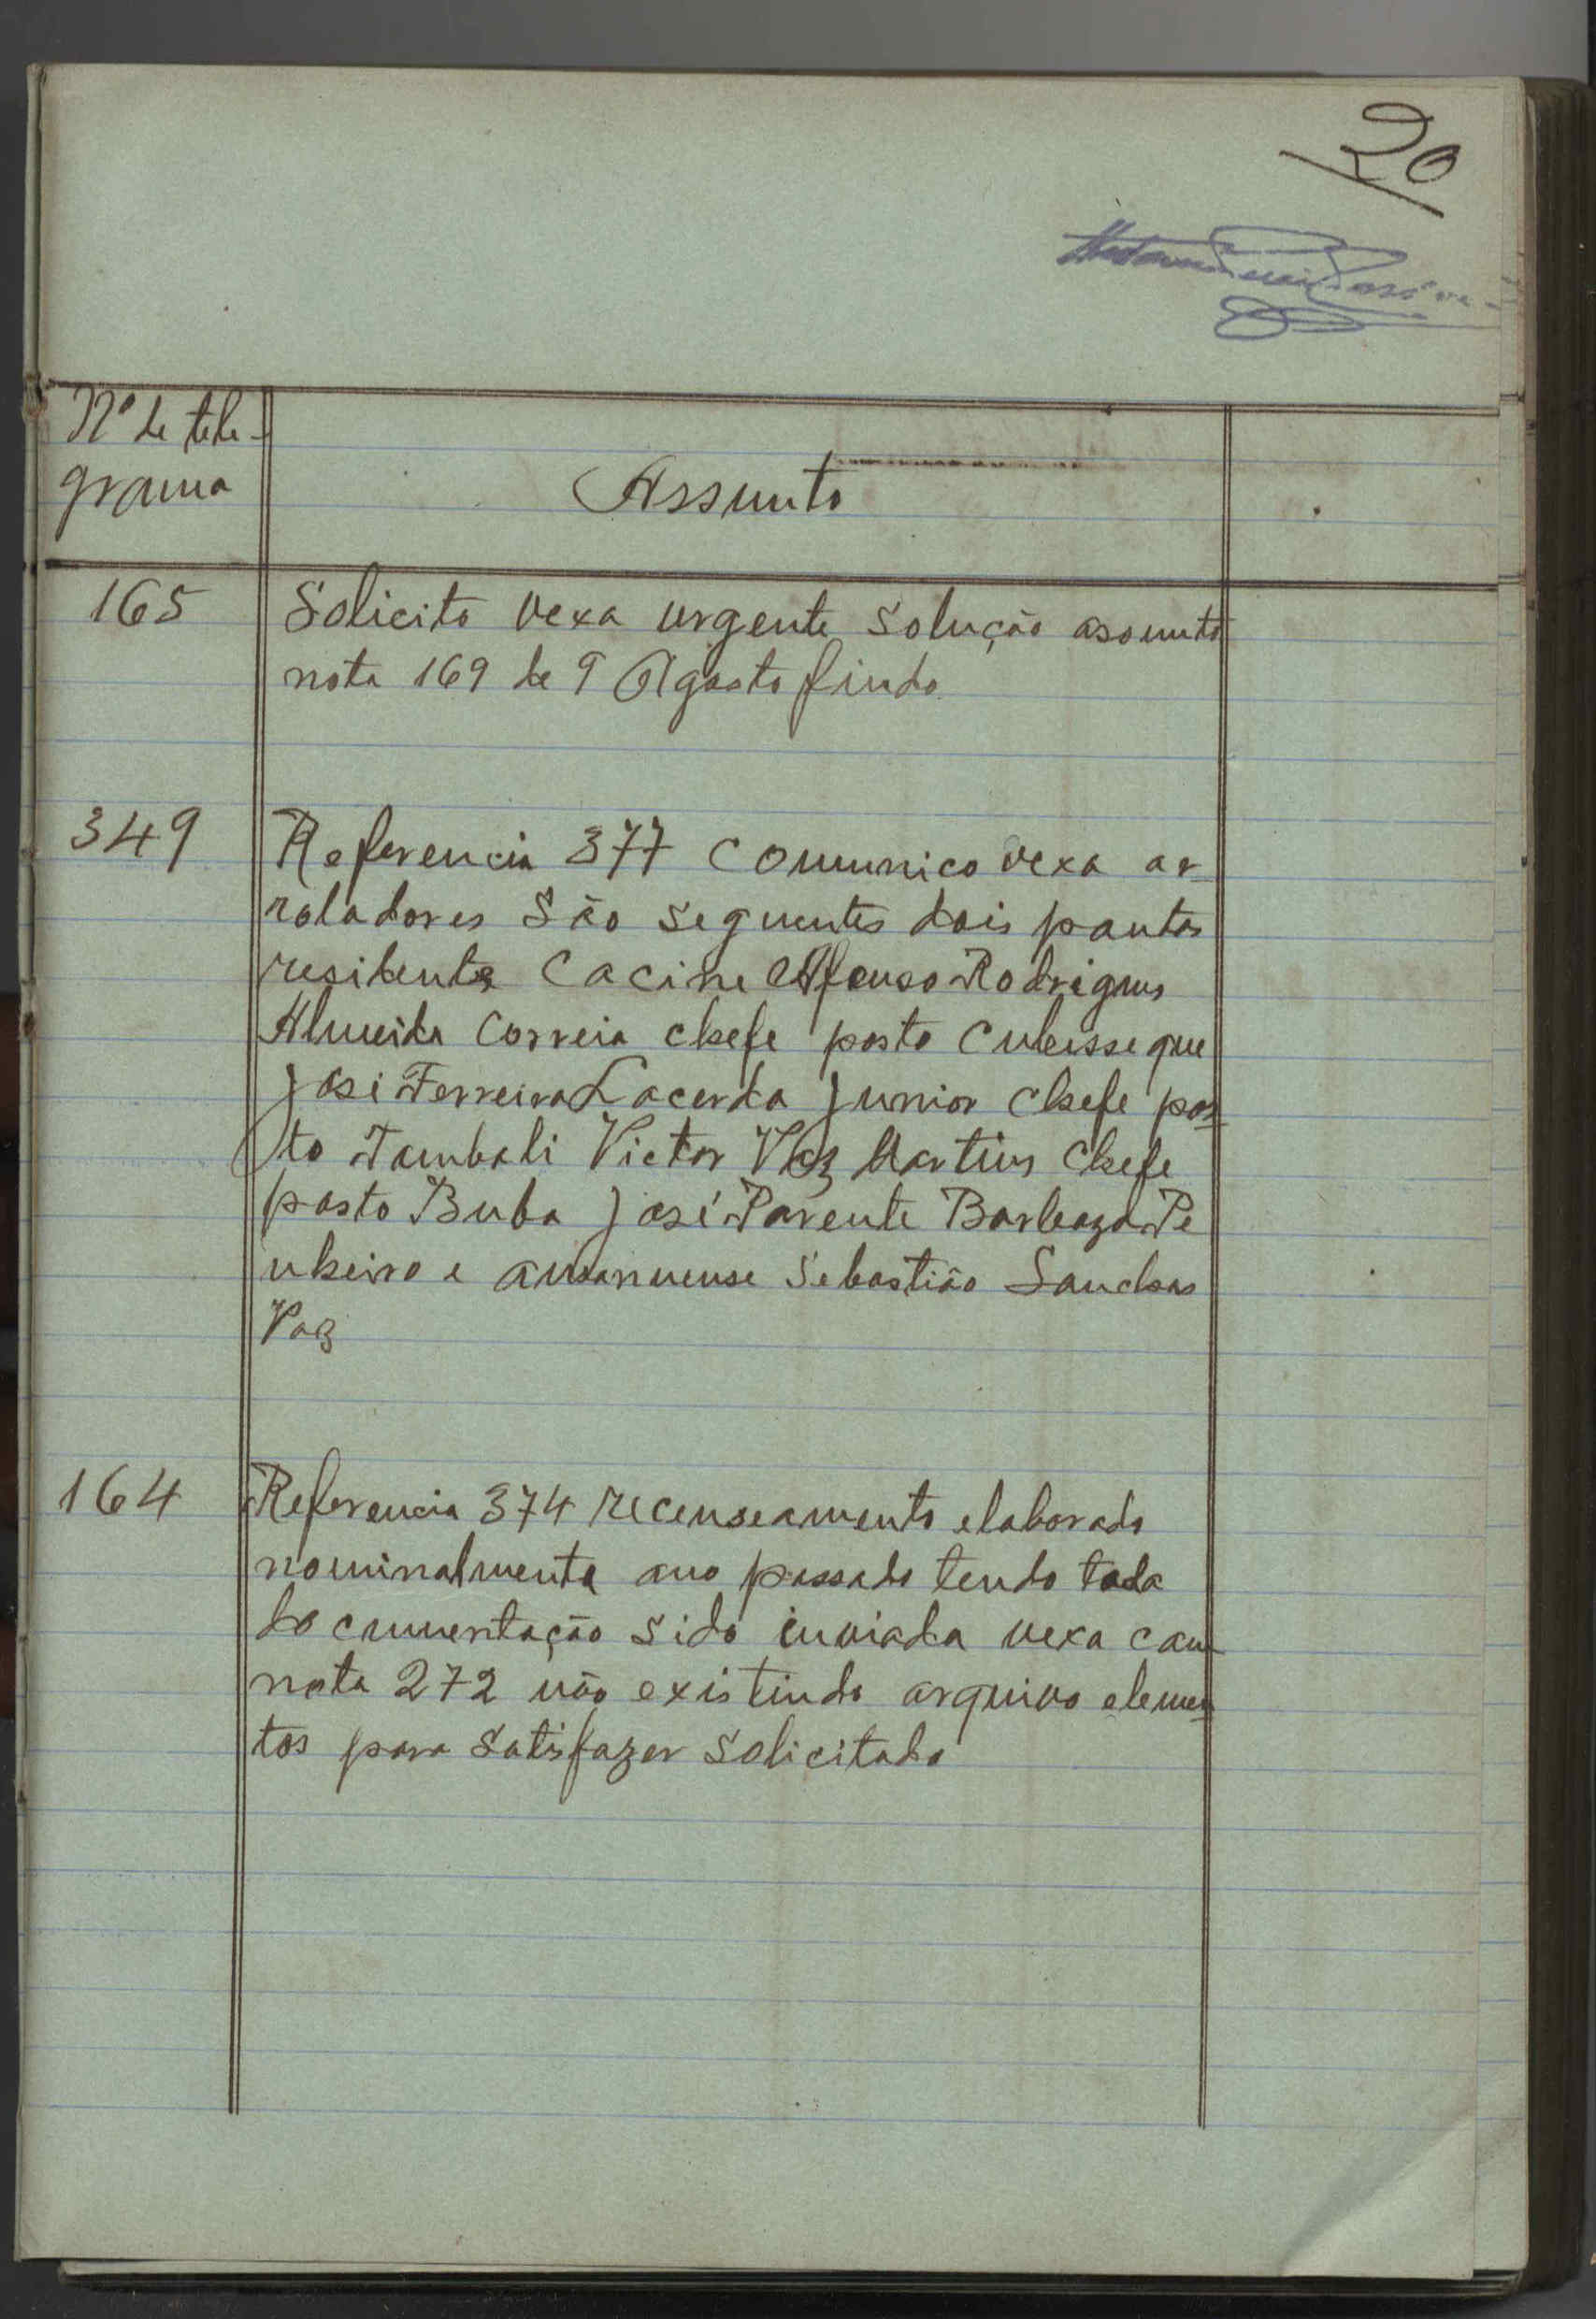 20
Nº de tele-
grama
Assunto
165
Solicito vexa urgente solução assunto
nota 169 de 9 Agosto findo
349
Referencia 377 comunico vexa ar-
roladores são seguentes dois pontos
residente Cacine Afonso Rodrigues
Almeida Correia chefe posto Cubisseque
José Ferreira Lacerda Junior chefe pos-
to Tambali Victor Vaz Martins chefe
posto Buba José Parente Barboza Pe
nheiro e amanuense Sebastião Sanchas
Vaz
164
Referencia 374 recenseamento elaborado
nominalmente ano passado tendo toda
documentação sido inviada vexa com
nota 272 não existindo arquivo elemen-
tos para satisfazer solicitado